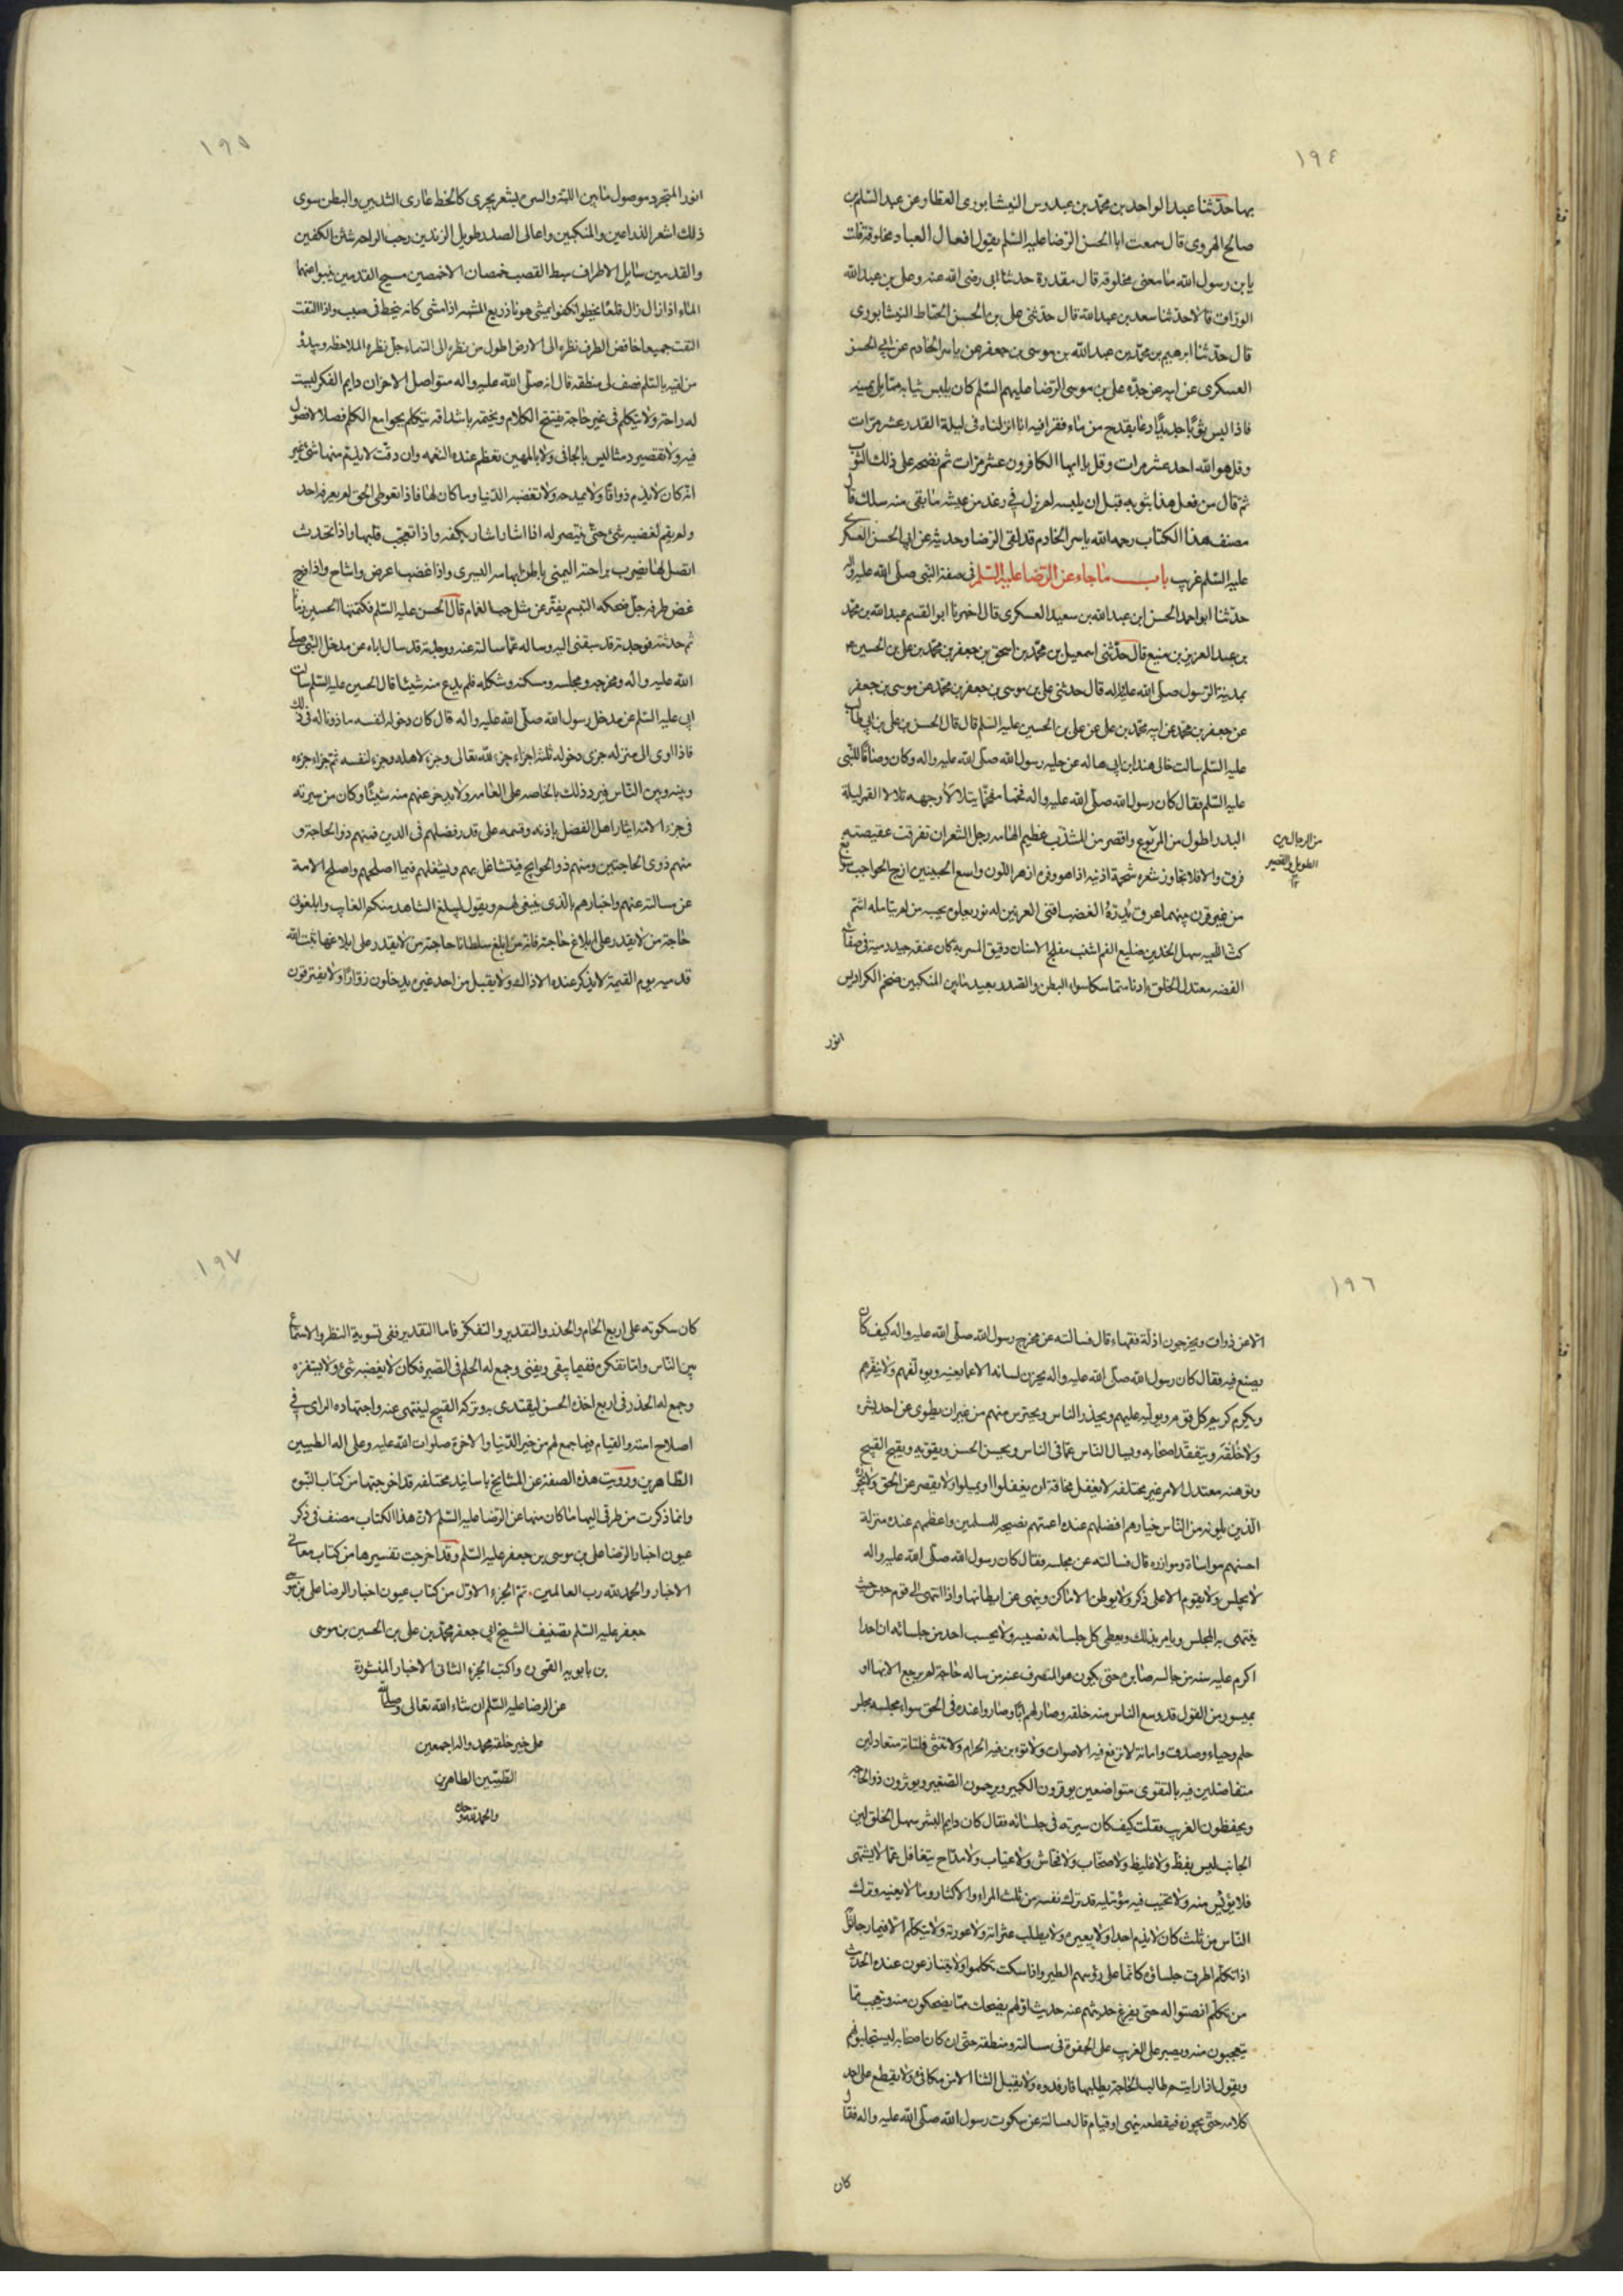 ١٩٤
بها حدثنا عبد الواحد بن محمد بن عبدوس النيشابورى العطار عن عبد السلم بن
صالح الهروى قال سمعت ابا الحسن الرضا عليه السلم يقول افعال العباد مخلوقة فقلت
يا بن رسول الله ما معنى مخلوقه قال مقدرة حدثنا ابى رضى الله عنه وعلى بن عبد الله
الوراق قالا حدثنا سعد بن عبد الله قال حدثنى على بن الحسن الخياط النيشابورى
قال حدثنا ابرهيم بن محمد بن عبد الله بن موسى بن جعفر عن ياسر الخادم عن ابى الحسن
العسكرى عن ابيه عن جده على بن موسى الرضا عليهم السلم كان يلبس ثيابه مما يلى يمينه
فاذا لبس ثوبا جديدا دعا بقدح من ماء فقرا فيه انا انزلناه فى ليلة القدر عشر مرات
وقل هو الله احد عشر مرات وقل يا ايها الكافرون عشر مرات ثم نضحه على ذلك الثوب
ثم قال من فعل هذا بثوبه قبل ان يلبسه لم يزل فى رغد من عيشه ما بقى منه سلك قال
مصنف هذا الكتاب رحمه الله ياسر الخادم قد لقى الرضا وحديثه عن ابى الحسن العسكرى
عليه السلم غريب باب ما جاء عن الرضا عليه السلم فى صفة النبى صلى الله عليه واله
حدثنا ابو احمد الحسن ابن عبد الله بن سعيد العسكرى قال اخبرنا ابو القسم عبد الله بن محمد
بن عبد العزيز بن منيع قال حدثنى اسمعيل بن محمد بن اسحق بن جعفر بن محمد بن على بن الحسين ع
بمدينة الرسول صلى الله عليه واله قال حدثنى على بن موسى بن جعفر بن محمد عن موسى بن جعفر
عن جعفر بن محمد عن ابيه محمد بن على عن على بن الحسين عليه السلم قال قال الحسن بن على بن ابى طالب
عليه السلم سالت خالى هند ابن ابى هاله عن حليه رسول الله صلى الله عليه واله وكان وصافا للنبى
عليه السلم فقال كان رسول الله صلى الله عليه واله فخما مفخما يتلالأ وجهه تلالا القمر ليلة
البدر اطول من المربوع واقصر من المشذب عظيم الهامه رجل الشعر ان تفرقت عقيصته
من الرجال بين
الطويل والقصير
١٢
فرق والا فلا يجاوز شعره شحمة اذنيه اذا هو وفره ازهر اللون واسع الجبينين ازج الحواجب سوابغ
من غير قرن بينهما عرق يُدِرّهُ الغضب اقنى العرنين له نور يعلوه يحسبه من لم يتامله اشم
كث اللحيه سهل الخدين ضليع الفم اشنب مفلج الاسنان دقيق المسربه كان عنقه جيد دمية فى صفاء
الفضه معتدل الخلق بادنا متماسكا سواء البطن والصدر بعيد ما بين المنكبين ضخم الكراديس
انور
١٩٥
انور المتجرد موصول ما بين اللبة والسره بشعر يجرى كالخط عارى الثديين والبطن سوى
ذلك اشعر الذراعين والمنكبين واعالى الصدر طويل الزندين رحب الراحه شثن الكفين
والقدمين سايل الاطراف سبط القصب خمصان الاخمصين مسيح القدمين ينبو عنهما
الماء اذا زال زال قلعا يخطو تكفوا يمشى هونا ذريع المشيه اذا مشى كانه ينحط فى صبب واذا التفت
التفت جميعا خافض الطرف نظره الى الارض اطول من نظره الى السماء جل نظره الملاحظه ويبدؤ
من لقيه بالسلم فصف لى منطقه قال انه صلى الله عليه واله متواصل الاحزان دايم الفكر ليست
له راحة ولا يتكلم فى غير حاجة يفتتح الكلام ويختمه باشداقه يتكلم بجوامع الكلم فصلا لا فضول
فيه ولا تقصير دمثا ليس بالجافى ولا بالمهين تعظم عنده النعمه وان دقت لا يذم منها شئ غير
انه كان لا يذم ذواقا ولا يمدحه ولا تغضبه الدنيا وما كان لها فاذا تعوطى الحق لم يعرفه احد
ولم يقم لغضبه شئ حتى ينتصر له اذا اشار اشار بكفه واذا تعجب قلبها واذا تحدث
اتصل لها يضرب براحته اليمنى باطن ابهامه اليسرى واذا غضب اعرض واشاح واذا فرح
غض طرفه جل ضحكه التبسم يفتر عن مثل حب الغمام قال الحسن عليه السلم فكتمتها الحسين زمانا
ثم حدثته فوجدته قد سبقنى اليه وساله عما سالته عنه ووجدته قد سال اباه عن مدخل النبى صلى
الله عليه واله ومخرجه ومجلسه ومسكنه وشكله فلم يدع منه شيئا قال الحسين عليه السلم سالت
ابى عليه السلم عن مدخل رسول الله صلى الله عليه واله قال كان دخوله لنفسه ماذونا له فى ذلك
فاذا اوى الى منزله جزى دخوله ثلثه اجزاء جزء لله تعالى وجزء لاهله وجزء لنفسه ثم جزاء جزءه
بينه وبين الناس فيرد ذلك بالخاصه على العامه ولا يدخر عنهم منه شيئا وكان من سيرته
فى جزء الامة ايثار اهل الفضل باذنه وقسمه على قدر فضلهم فى الدين فمنهم ذو الحاجة و
منهم ذوى الحاجتين ومنهم ذو الحوايج فيتشاغل بهم ويشغلهم فيما اصلحهم واصلح الامة
عن مسالته عنهم واخبارهم بالذى ينبغى لهم ويقول ليبلغ الشاهد منكم الغايب وابلغونى
حاجة من لا يقدر على ابلاغ حاجته فانه من ابلغ سلطانا حاجة من لا يقدر على ابلاغها ثبت الله
قدميه يوم القيمة لا يذكر عنده الا ذلك ولا يقبل من احد غيره يدخلون روادا ولا يفترقون
١٩٦
الا عن ذواق ويخرجون ادلة فقهاء قال فسالته عن مخرج رسول الله صلى الله عليه واله كيف كان
يصنع فيه فقال كان رسول الله صلى الله عليه واله يخزن لسانه الا عما يعنيه ويولفهم ولا ينفرهم
ويكرم كريم كل قوم ويوليه عليهم ويحذر الناس ويحترس منهم من غير ان يطوى عن احد بشره
ولا خلقه ويتفقد اصحابه ويسال الناس عما فى الناس ويحسن الحسن ويقويه ويقبح القبيح
ويوهنه معتدل الامر غير مختلفه لا يغفل مخافة ان يغفلوا او يميلوا ولا يقصر عن الحق ولا يجوزه
الذين يلونه من الناس خيارهم افضلهم عنده اعمتهم نصيحه للمسلمين واعظمهم عنده منزلة
احسنهم مواساة وموازره قال فسالته عن مجلسه فقال كان رسول الله صلى الله عليه واله
لا يجلس ولا يقوم الا على ذكر ولا يوطن الاماكن وينهى عن ايطانها واذا انتهى الى قوم جلس حيث
ينتهى به المجلس ويامر بذلك ويعطى كل جلسائه نصيبه ولا يحسب احد من جلسائه ان احدا
اكرم عليه منه من جالسه صابره حتى يكون هو المنصرف عنه من ساله حاجة لم يرجع الا بها او
بميسور من القول قد وسع الناس منه خلقه وصار لهم ابا وصاروا عنده فى الحق سواء مجلسه مجلس
حلم وحياء وصدق وامانة لا ترفع فيه الاصوات ولا توبن فيه الحرم ولا تنثى فلتاته متعادلين
متفاضلين فيه بالتقوى متواضعين يوقرون الكبير ويرحمون الصغير ويوثرون ذو الحاجه
ويحفظون الغريب فقلت كيف كان سيرته فى جلسائه فقال كان دايم البشر سهل الخلق لين
الجانب ليس بفظ ولا غليظ ولا صخاب ولا فحاش ولا عياب ولا مداح يتغافل عما لا يشتهى
فلا يؤيس منه ولا يخيب فيه مؤمليه قد ترك نفسه من ثلث المراء والاكثار وما لا يعنيه وترك
الناس من ثلث كان لا يذم احدا ولا يعيره ولا يطلب عثراته ولا عورته ولا يتكلم الا فيما رجا ثوابه
اذا تكلم اطرق جلساؤه كانما على رؤسهم الطير واذا سكت تكلموا ولا يتنازعون عنده الحديث
من تكلم انصتوا له حتى يفرغ حديثهم عنده حديث اولهم يضحك مما يضحكون منه ويتعجب مما
يتعجبون منه ويصبر على الغريب على الجفوة فى مسالته ومنطقه حتى ان كان اصحابه ليستجلبونهم
ويقول اذا رايتم طالب الحاجة يطلبها فارفدوه ولا يقبل الثنا الا من مكافئ ولا يقطع على احد
كلامه حتى يجوزه فيقطعه بنهى او قيام قال فسالته عن سكوت رسول الله صلى الله عليه واله فقال
كان
١٩٧
كان سكوته على اربع الحلم والحذر والتقدير والتفكر فاما التقدير ففى تسوية النظر والاستماع
بين الناس واما تفكره ففيما يبقى ويفنى وجمع له الحلم فى الصبر فكان لا يغضبه شئ ولا يستفزه
وجمع له الحذر فى اربع اخذه الحسن ليقتدى به وتركه القبيح لينتهى عنه واجتهاده الراى فى
اصلاح امته والقيام فيما جمع لهم من خير الدنيا والاخرة صلوات الله عليه وعلى اله الطيبين
الطاهرين ورويت هذه الصفة عن المشايخ باسانيد مختلفه قد اخرجتها من كتاب النبوه
وانما ذكرت من طرقى اليها ما كان منها عن الرضا عليه السلم لان هذا الكتاب مصنف فى ذكر
عيون اخبار الرضا على بن موسى بن جعفر عليه السلم وقد اخرجت تفسيرها من كتاب معانى
الاخبار والحمد لله رب العالمين. تم الجزء الاول من كتاب عيون اخبار الرضا على بن موسى
جعفر عليه السلم تصنيف الشيخ ابى جعفر محمد بن على بن الحسين بن موسى
بن بابويه القمى ره واكتب الجزء الثانى الاخبار المنثورة
عن الرضا عليه السلم ان شاء الله تعالى وصلى الله
على خير خلقه محمد واله اجمعين
الطيبين الطاهرين
والحمد لله وحده